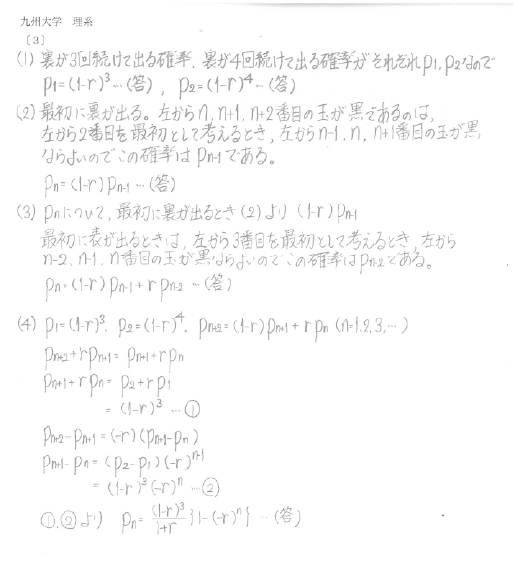 九州大学 理系
〔3〕
(1) 裏が3回続けて出る確率、裏が4回続けて出る確率がそれぞれp₁, p₂なので
p₁=(1-r)³…(答), p₂=(1-r)⁴…(答)
(2) 最初に裏が出る。左からn, n+1, n+2番目の玉が黒であるのは、
左から2番目を最初として考えるとき、左からn-1, n, n+1番目の玉が黒
ならよいのでこの確率はpₙ₋₁である。
pₙ=(1-r)pₙ₋₁…(答)
(3) pₙについて、最初に裏が出るとき(2)より (1-r)pₙ₋₁
最初に表が出るときは、左から3番目を最初として考えるとき、左から
n-2, n-1, n番目の玉が黒ならよいのでこの確率はpₙ₋₂である。
pₙ=(1-r)pₙ₋₁+rpₙ₋₂ …(答)
(4) p₁=(1-r)³, p₂=(1-r)⁴, pₙ₊₂=(1-r)pₙ₊₁+rpₙ (n=1,2,3,…)
pₙ₊₂+rpₙ₊₁=pₙ₊₁+rpₙ
pₙ₊₁+rpₙ=p₂+rp₁
=(1-r)³ …①
pₙ₊₂-pₙ₊₁=(-r)(pₙ₊₁-pₙ)
pₙ₊₁-pₙ=(p₂-p₁)(-r)ⁿ⁻¹
=(1-r)³(-r)ⁿ …②
①,②より pₙ=(1-r)³/(1+r){1-(-r)ⁿ} …(答)